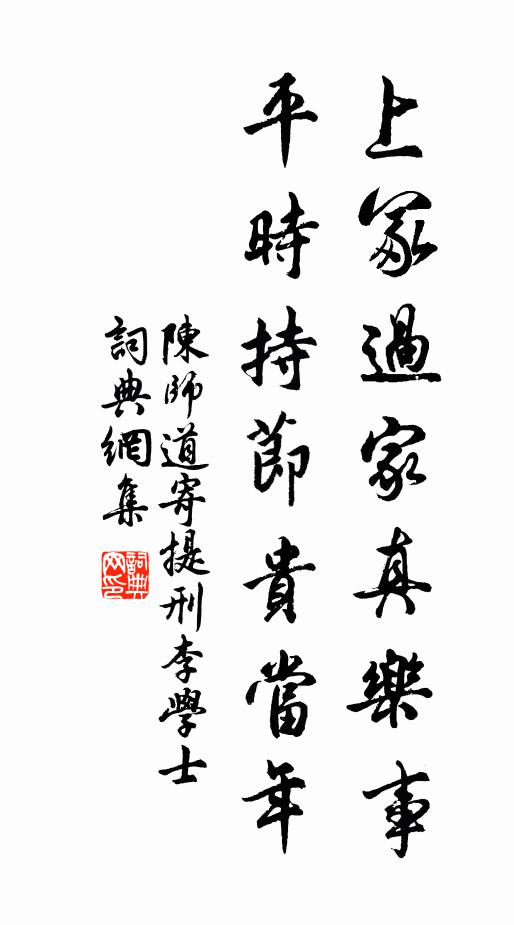 上冢過家真樂事
平時持節貴當年
陳師道寄提刑李學士
詞典網集
詞典
文印